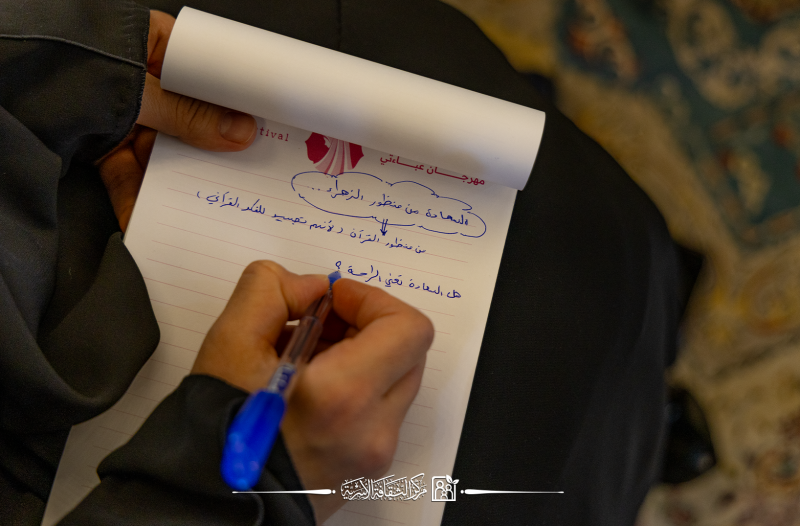 tival
مهرجـــان عبـاءتي
السعادة من منظور الزهراء...
من منظور القرآن (لأنهم تجسيد للفكر القرآني)
هل السعادة تعني الراحة ؟
مركز الثقافة الأسرية